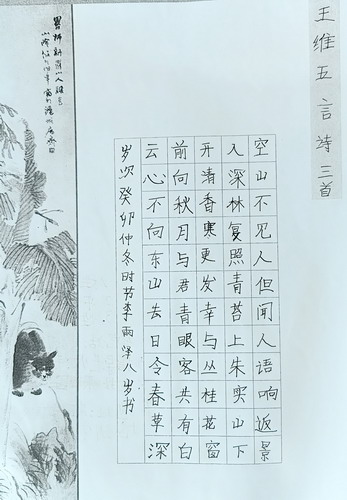 王维五言诗三首
空山不见人但闻人语响返景
入深林复照青苔上朱实山下
开清香寒更发幸与丛桂花窗
前向秋月与君青眼客共有白
云心不向东山去日令春草深
岁次癸卯仲冬时节李雨泽八岁书